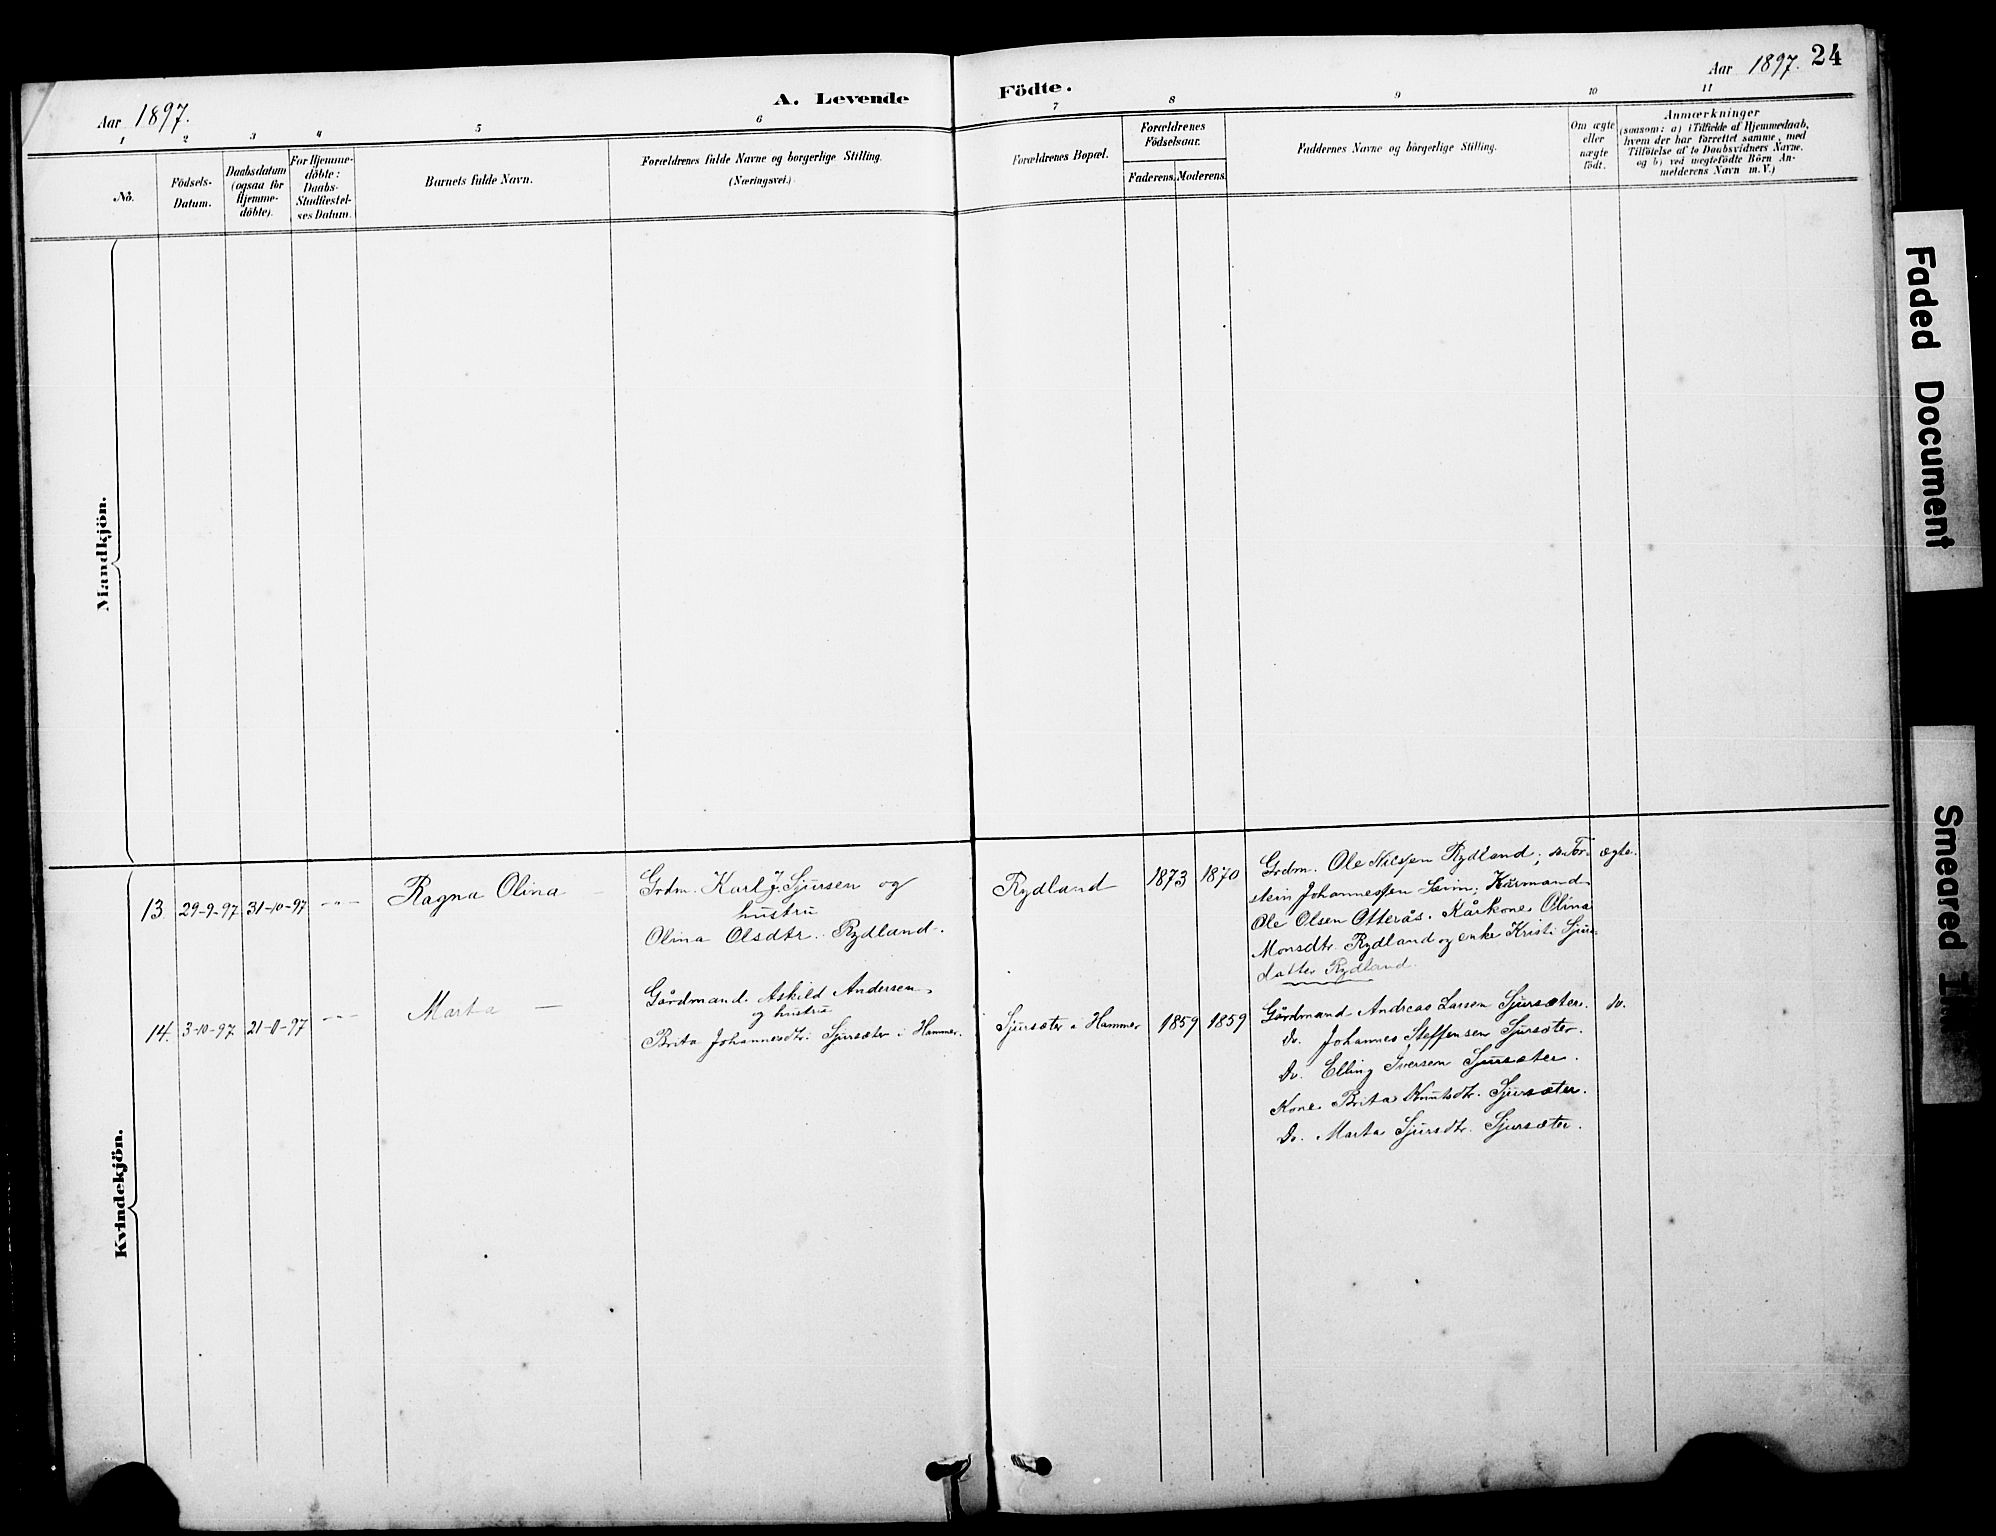 Aar 1897.
A. Levende
Födte.
Aar 1897. 24
1 2 3 4 5 6 7 8 9 10 11
No.
Födsels-
Datum.
Daabsdatum
(ogsaa for
Hjemme-
döbte).
For Hjemme-
döbte:
Daabs-
Stadfæstel-
ses Datum.
Barnets fulde Navn.
Forældrenes fulde Navne og borgerlige Stilling.
(Næringsvei.)
Forældrenes Bopæl.
Forældrenes
Födselsaar.
Faderens. Moderens.
Faddernes Navne og borgerlige Stilling.
Om ægte
eller
uægte
födt.
Anmærkninger
(saasom: a) i Tilfælde af Hjemmedaab,
hvem der har forrettet samme, med
Tilföielse af to Daabsvidners Navne.
og b) ved uægtefödte Börn An-
melderens Navn m. V.)
Mandkjön.
Kvindekjön.
13. 29-9-97 31-10-97 -"-
Ragna Olina
Grdm. Karl J. Sjursen og
hustru
Olina Olsdtr. Rydland.
Rydland
1873 1870
Grdm. Ole Nilssen Rydland; sn Tor-
stein Johannessen Seim; Kårmand
Ole Olsen Otterås. Kårkone Olina
Monsdtr. Rydland og enke Kristi Sjurs-
datter Rydland.
ægte.
14. 3-10-97 21-11-97 -"-
Marta
Gårdmand. Askild Andersen
og hustru
Brita Johannesdtr. Sjursæter i Hammer.
Sjursæter i Hammer
1859 1859
Gårdmand Andreas Larsen Sjursæter.
Do. Johannes Steffensen Sjursæter.
Do. Elling Iversen Sjursæter.
Kone Brita Knutsdtr. Sjursæter.
Do. Marta Sjursdtr. Sjursæter.
do.
Faded Document
Smeared